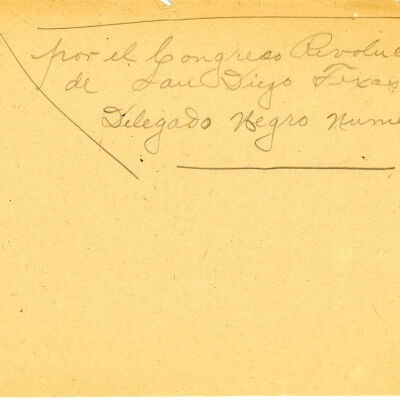 por el Congreso Revoluc
de San Diego Texas
Delegado Negro Nume